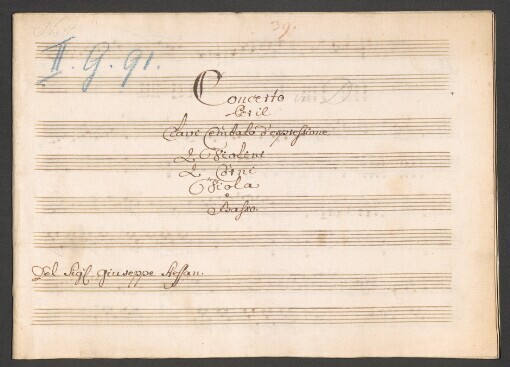 39.
II. G. 91.
Concerto
Per il
Clavi Cembalo d'espressione
2 Violini
2 Corni
Viola
e
Basso.
Del Sigl. Giuseppe Steffan.